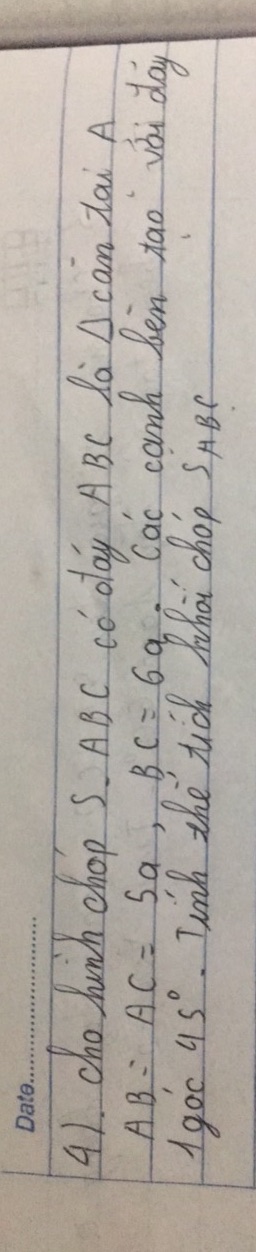 Date......................
4). Cho hình chóp S.ABC có đáy ABC là Δ cân tại A
AB = AC = 5a, BC = 6a. Các cạnh bên tạo với đáy
1 góc 45°. Tính thể tích khối chóp SABC